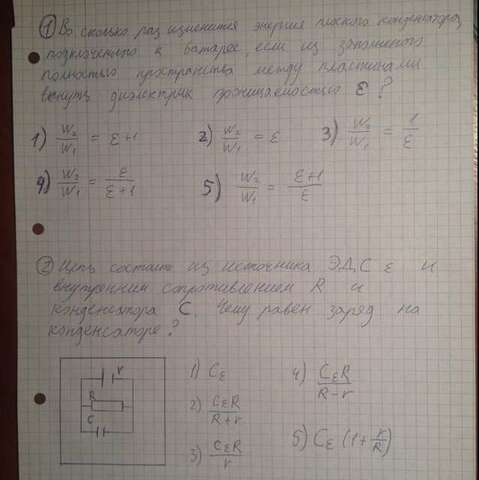 ① Во сколько раз изменится энергия плоского конденсатора,
подключённого к батарее, если из заполненого
полностью пространства между пластинами
вынуть диэлектрик проницаемостью ε ?
1) W₂/W₁ = ε+1 2) W₂/W₁ = ε 3) W₂/W₁ = 1/ε
4) W₂/W₁ = ε/(ε+1) 5) W₂/W₁ = (ε+1)/ε
② Цепь состоит из источника ЭДС ε и
внутренним сопротивлением R и
конденсатора C. Чему равен заряд на
конденсаторе?
r
R
C
1) Cε
2) CεR/(R+r)
3) CεR/r
4) CεR/(R-r)
5) Cε (1+r/R)